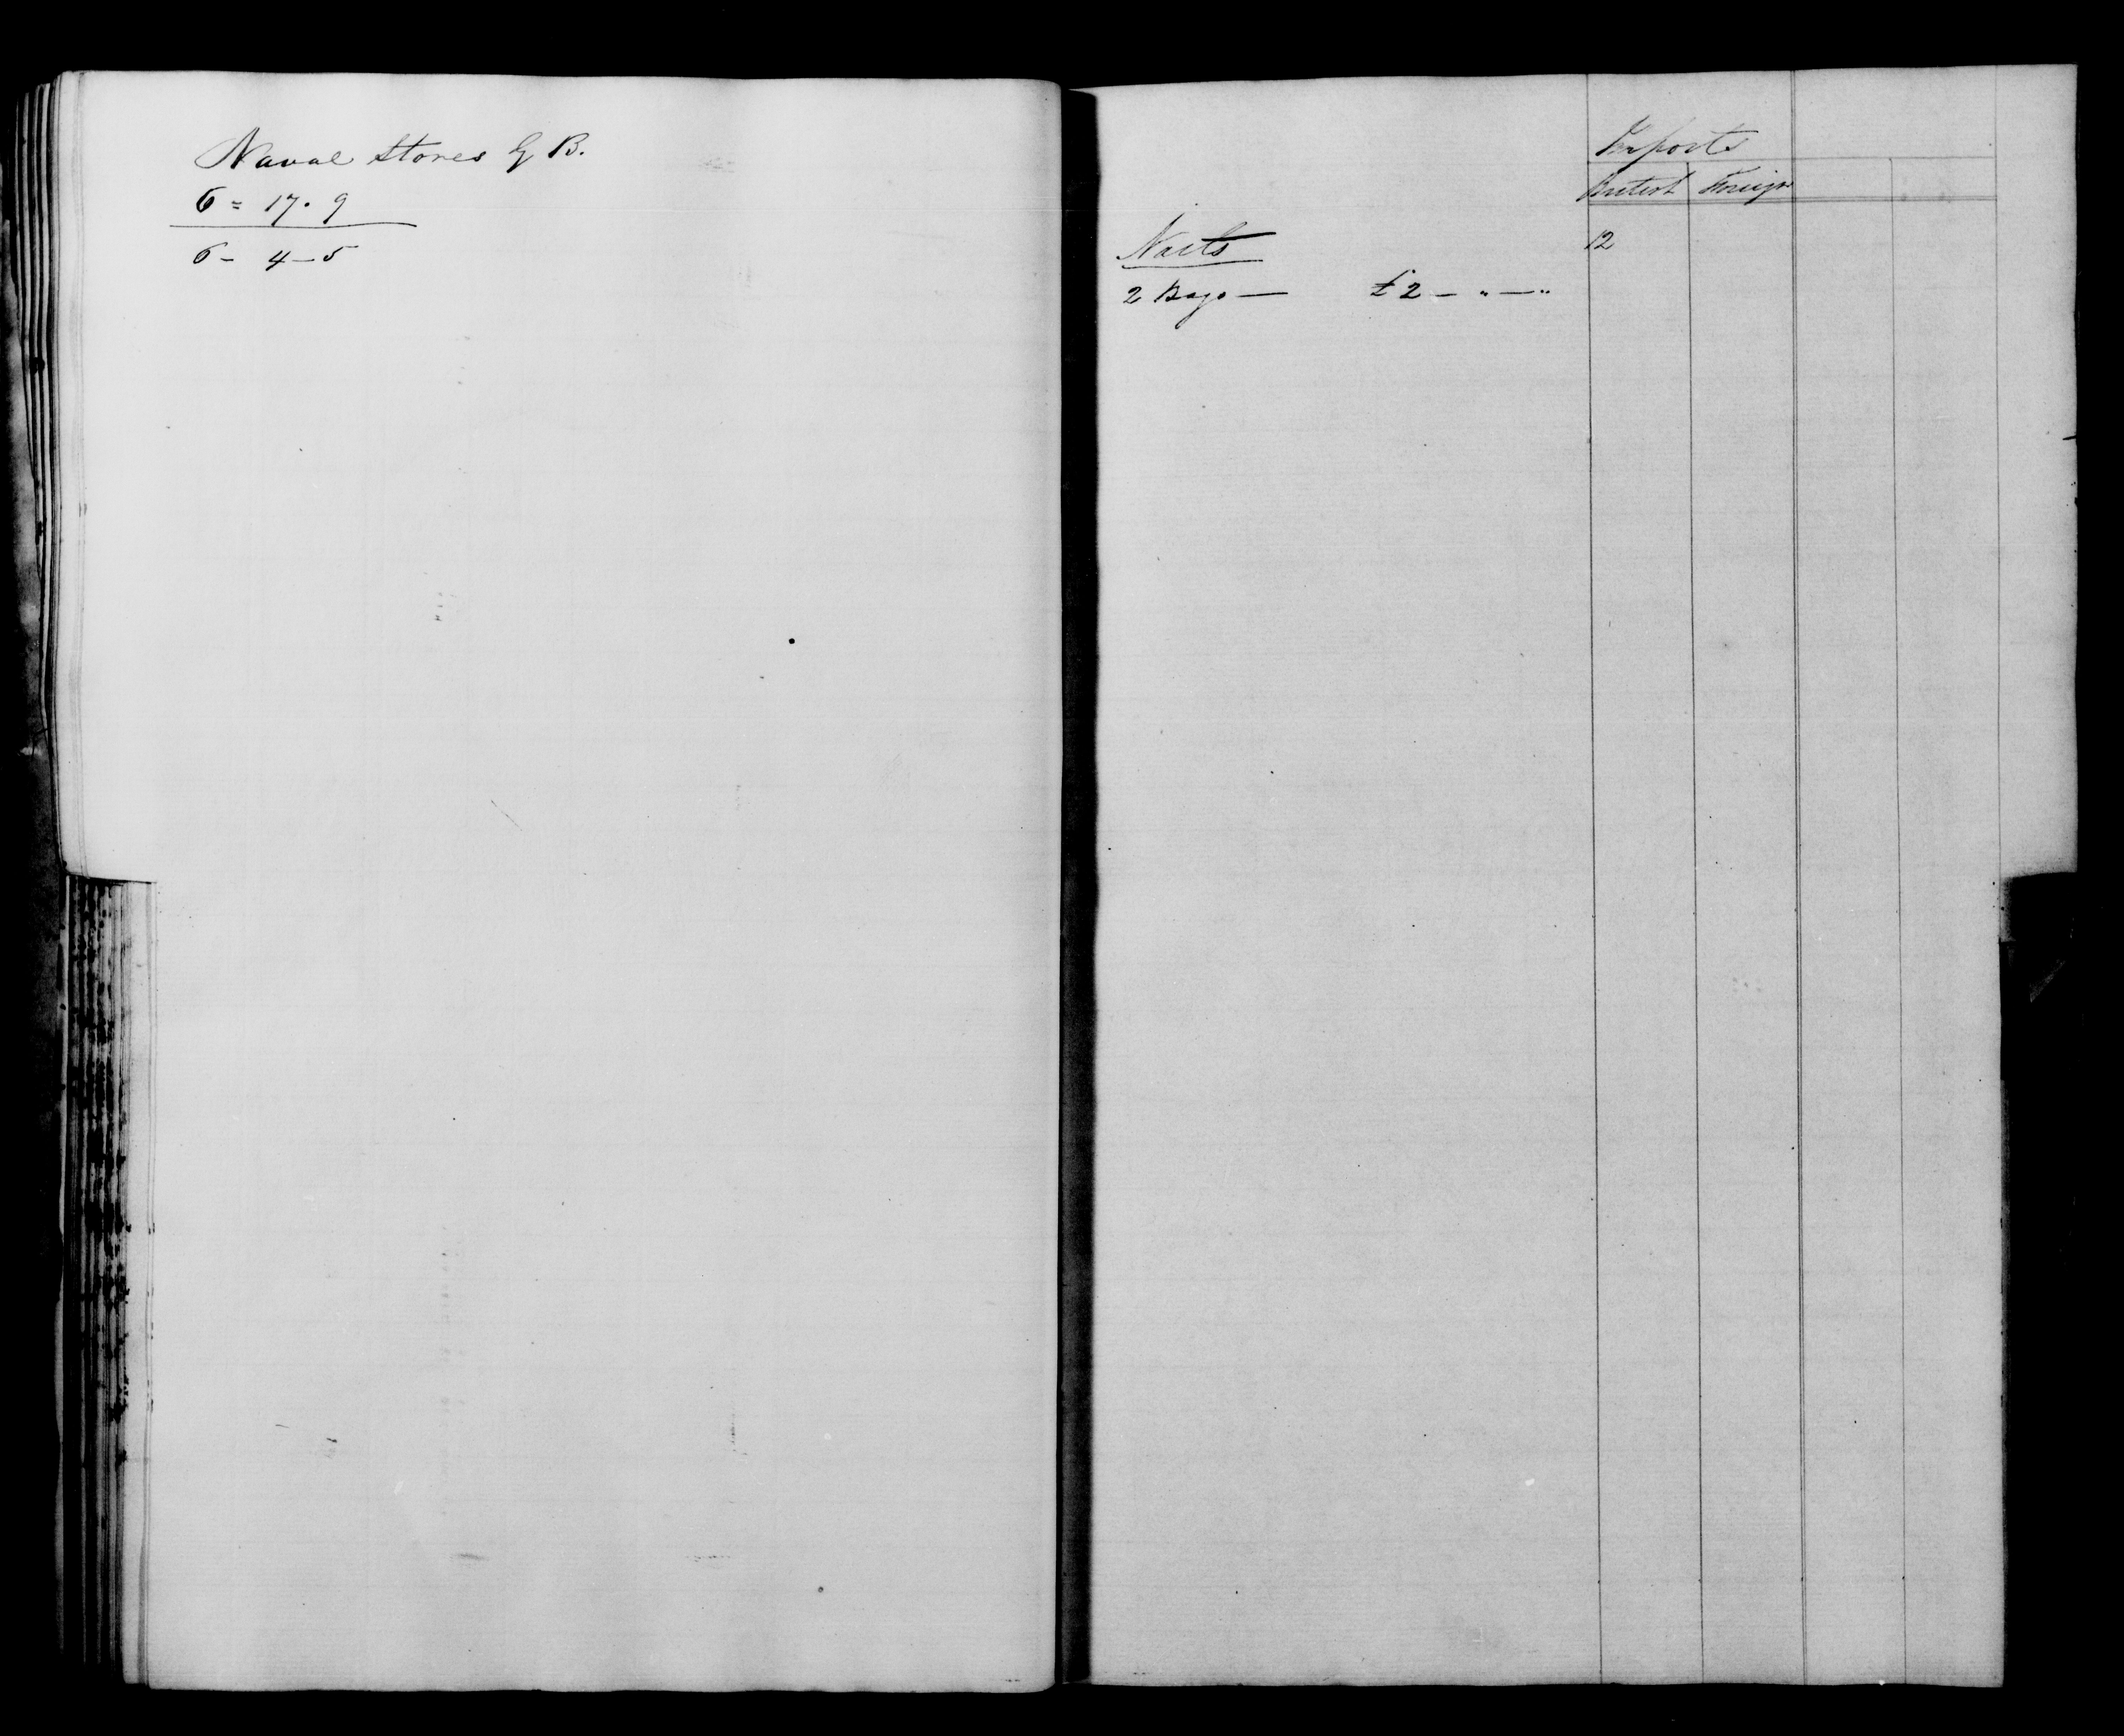 Naval Stores G B.
6 = 17. 9
6 - 4 - 5
Imports
British Foreign
Nails 12
2 Bags — £2 - " - "